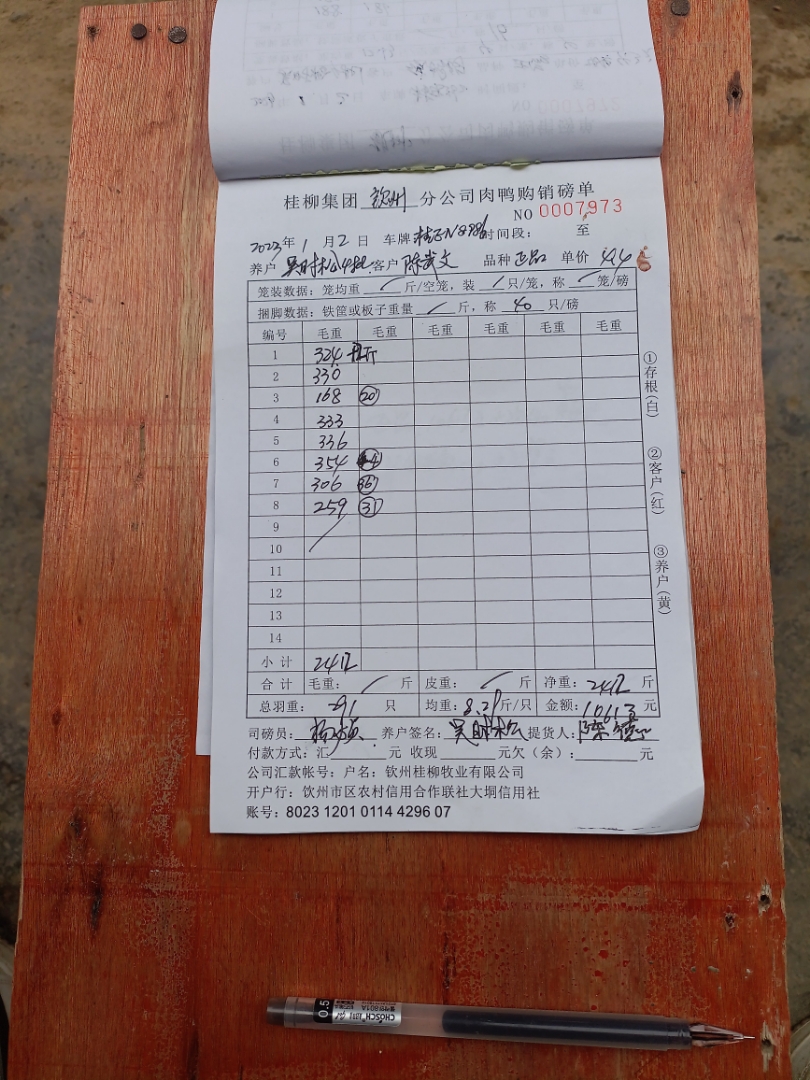 桂柳集团 钦州 分公司肉鸭购销磅单
NO 0007973
2023年 1 月 2 日 车牌 时间段: 至
养户 吴时松 客户 陈武文 品种 正品 单价 4.4
笼装数据: 笼均重 / 斤/空笼, 装 / 只/笼, 称 / 笼/磅
捆脚数据: 铁筐或板子重量 / 斤, 称 40 只/磅
编号 毛重 毛重 毛重 毛重 毛重 毛重
1 324
2 330
3 168 20
4 333
5 336
6 354
7 306 36
8 259 31
9
10
11
12
13
14
小计 2412
合计 毛重: / 斤 皮重: / 斤 净重: 2412 斤
总羽重: 291 只 均重: 8.29 斤/只 金额: 10613 元
司磅员: 养户签名: 吴时松 提货人:
付款方式: 汇 元 收现 元欠(余): 元
公司汇款帐号: 户名: 钦州桂柳牧业有限公司
开户行: 钦州市区农村信用合作联社大垌信用社
账号: 8023 1201 0114 4296 07
①存根(白)
②客户(红)
③养户(黄)
0.5
CHOSCH